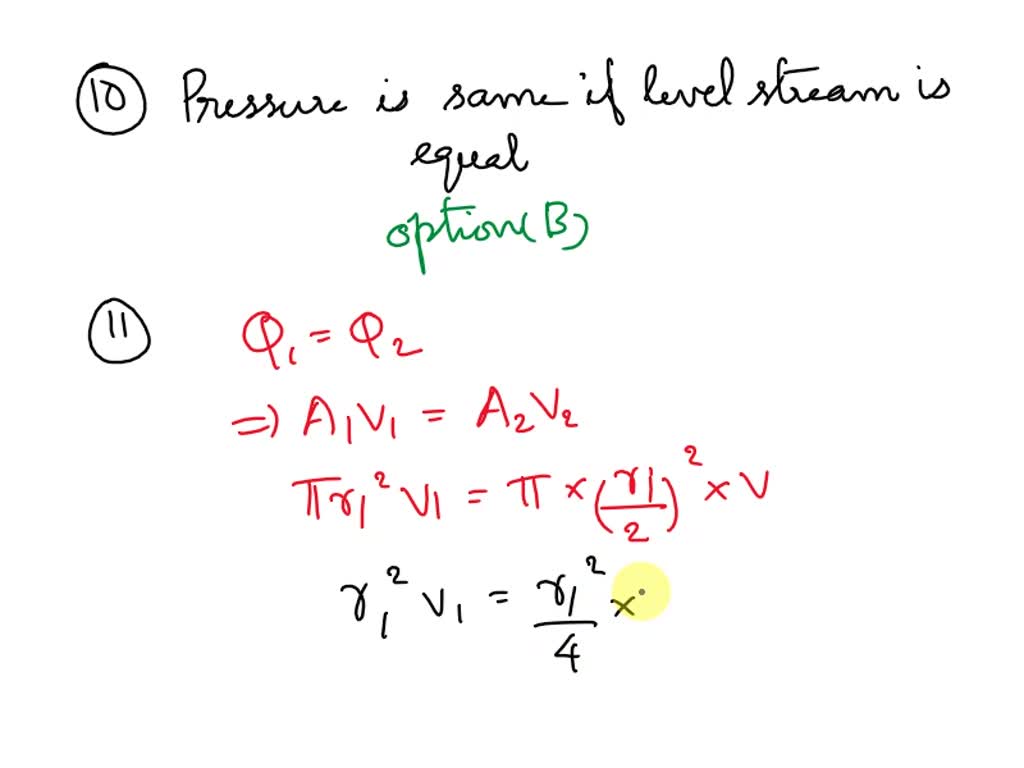 10 Pressure is same if level stream is
equal
option(B)
11 Q₁ = Q₂
=) A₁V₁ = A₂V₂
πr₁² V₁ = π × (r₁/2)² × V
r₁² V₁ = r₁²/4 ×